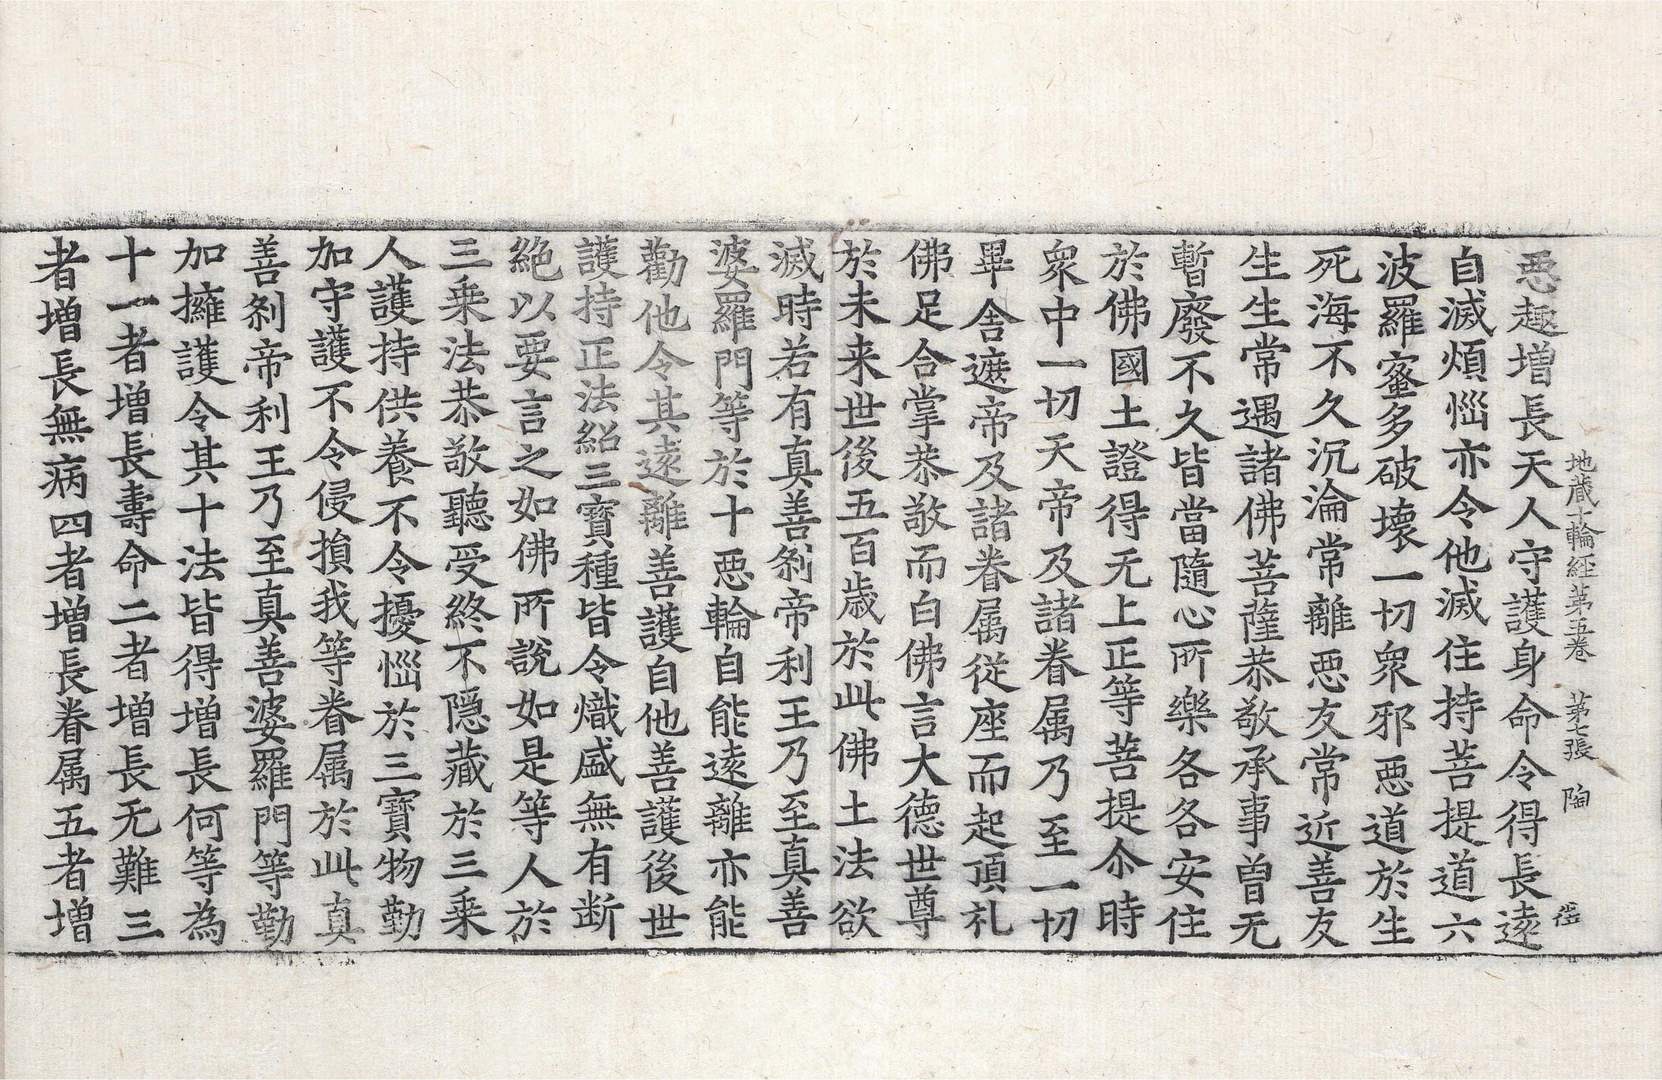 地蔵十輪経第五巻　第七張　陶
惡趣增長天人守護身命令得長逺
自滅煩惱亦令他滅住持菩提道六
波羅蜜多破壞一切衆邪惡道於生
死海不久沉淪常離惡友常近善友
生生常遇諸佛菩薩恭敬承事曾无
暫廢不久皆當隨心所樂各各安住
於佛國土證得无上正等菩提尒時
衆中一切天帝及諸眷属乃至一切
畢舍遮帝及諸眷属従座而起頂礼
佛足合掌恭敬而白佛言大德世尊
於未来世後五百歳於此佛土法欲
滅時若有真善剎帝利王乃至真善
婆羅門等於十惡輪自能逺離亦能
勸他令其逺離善護自他善護後世
護持正法紹三寳種皆令熾盛無有断
絶以要言之如佛所說如是等人於
三乗法恭敬聽受終不隱蔵於三乗
人護持供養不令擾惱於三寳物勤
加守護不令侵損我等眷属於此真
善剎帝利王乃至真善婆羅門等勤
加擁護令其十法皆得增長何等為
十一者增長壽命二者增長无難三
者增長無病四者增長眷属五者增